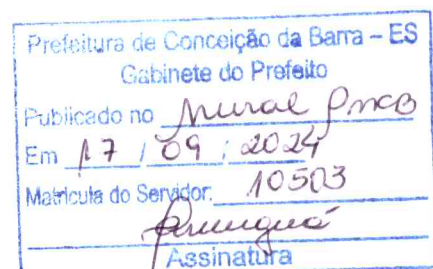 Prefeitura de Conceição da Barra – ES
Gabinete do Prefeito
Publicado no Mural PMCB
Em 17 / 09 / 2024
Matrícula do Servidor: 10503
Assinatura